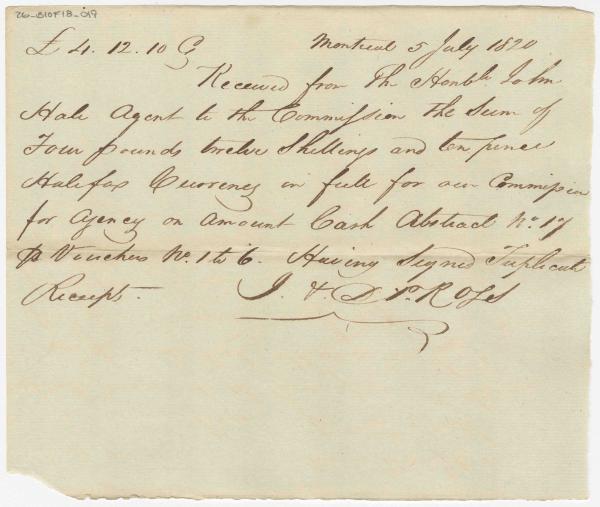 26-B10F18-019
£ 4. 12. 10 Montreal 5 July 1820
Received from the Honble John
Hale Agent to the Commission the Sum of
Four pounds twelve Shillings and ten pence
Halifax Currency in full for our Commission
for Agency on Amount Cash Abstract No. 17
p Vouchers No. 1 to 6. Having Signed Triplicate
Receipts.